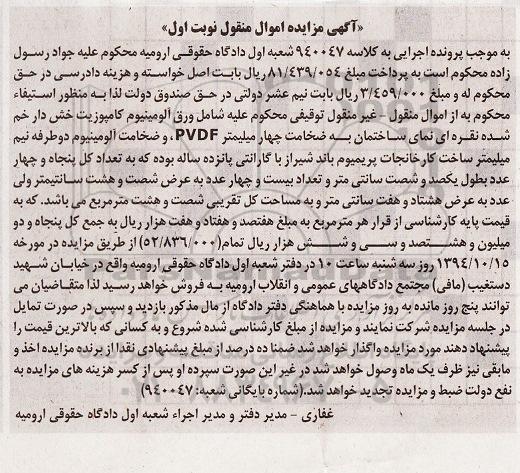 «آگهی مزایده اموال منقول نوبت اول»
به موجب پرونده اجرایی به کلاسه ۹۴۰۰۴۷ شعبه اول دادگاه حقوقی ارومیه محکوم علیه جواد رسول
زاده محکوم است به پرداخت مبلغ ۸۱/۴۳۹/۰۵۴ ریال بابت اصل خواسته و هزینه دادرسی در حق
محکوم له و مبلغ ۳/۴۵۹/۰۰۰ ریال بابت نیم عشر دولتی در حق صندوق دولت لذا به منظور استیفاء
محکوم به از اموال منقول - غیر منقول توقیفی محکوم علیه شامل ورق الومینیوم کامپوزیت خش دار خم
شده نقره ای نمای ساختمان به ضخامت چهار میلیمتر PVDF، و ضخامت الومینیوم دوطرفه نیم
میلیمتر ساخت کارخانجات پریمیوم باند شیراز با گارانتی پانزده ساله بوده که به تعداد کل پنجاه و چهار
عدد بطول یکصد و شصت سانتی متر و تعداد بیست و چهار عدد به عرض شصت و هشت سانتیمتر ولی
عدد به عرض هشتاد و هفت سانتی متر و به مساحت کل تقریبی شصت و هشت مترمربع می باشد. که به
قیمت پایه کارشناسی از قرار هر مترمربع به مبلغ هفتصد و هفتاد و هفت هزار ریال به جمع کل پنجاه و دو
میلیون و هشـتصد و سـی و شـش هزار ریال تمام(۵۲/۸۳۶/۰۰۰) از طریق مزایده در مورخه
۱۳۹۴/۱۰/۱۵ روز سه شنبه ساعت ۱۰ در دفتر شعبه اول دادگاه حقوقی ارومیه واقع در خیابان شهید
دستغیب (مافی) مجتمع دادگاههای عمومی و انقلاب ارومیه به فروش خواهد رسید لذا متقاضیان می
توانند پنج روز مانده به روز مزایده با هماهنگی دفتر دادگاه از مال مذکور بازدید و سپس در صورت تمایل
در جلسه مزایده شرکت نمایند و مزایده از مبلغ کارشناسی شده شروع و به کسانی که بالاترین قیمت را
پیشنهاد دهند مورد مزایده واگذار خواهد شد ضمنا ده درصد از مبلغ پیشنهادی نقدا از برنده مزایده اخذ و
مابقی نیز ظرف یک ماه وصول خواهد شد در غیر این صورت سپرده او پس از کسر هزینه های مزایده به
نفع دولت ضبط و مزایده تجدید خواهد شد.(شماره بایگانی شعبه: ۹۴۰۰۴۷)
غفاری - مدیر دفتر و مدیر اجراء شعبه اول دادگاه حقوقی ارومیه